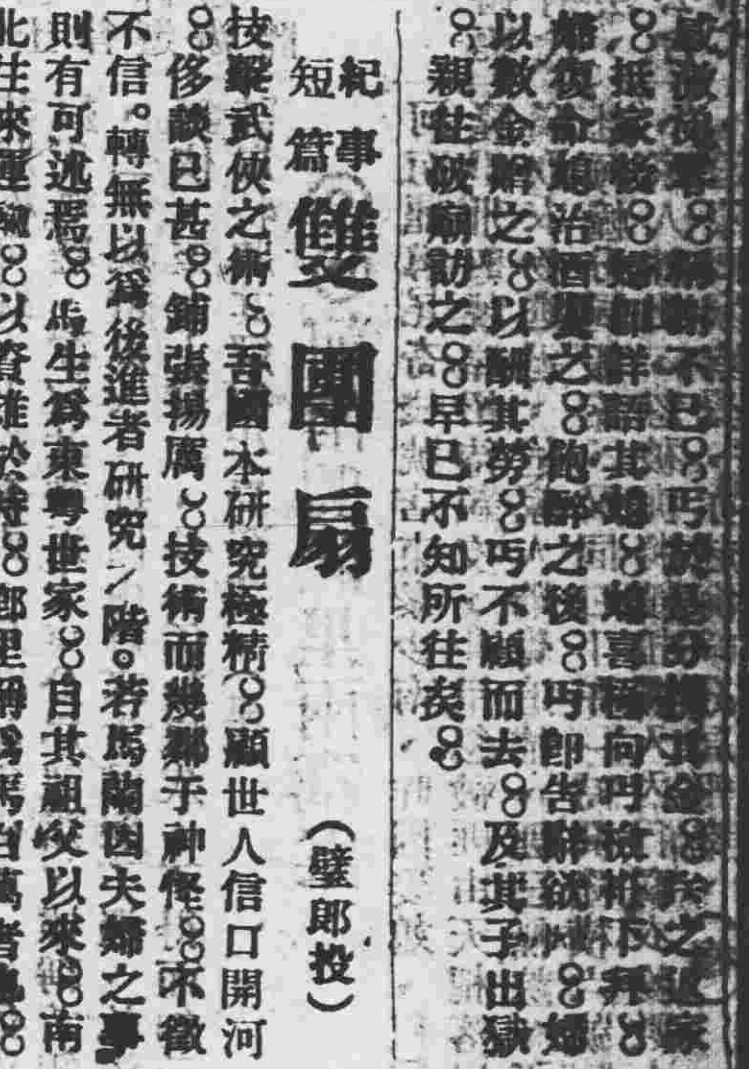 不已。丐於是分
抵家後。婦卽詳語其媳。媳喜極向丐襝衽下拜。
復命媳治酒饗之。飽醉之後。丐卽告辭欲。婦
以數金贈之。以酬其勞。丐不顧而去。及其子出獄
。親往破廟訪之。早已不知所往矣。
紀事
短篇
雙團扇
(璧郎投)
技擊武俠之術。吾國本研究極精。顧世人信口開河
。侈談已甚。鋪張揚厲。技術而幾鄰于神怪。不徵
不信。轉無以爲後進者研究ノ階。若馬蘭因夫婦之事
則有可述焉。馬生爲東粵世家。自其祖父以來。南
北往來運。以資雄於時。鄉里稱爲馬百萬者也。